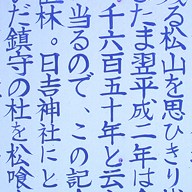 る松山を思ひきり
たま翌平成二年は
千六百五十年と云
当るので、この記
林。日吉神社にと
だ鎮守の杜を松喰